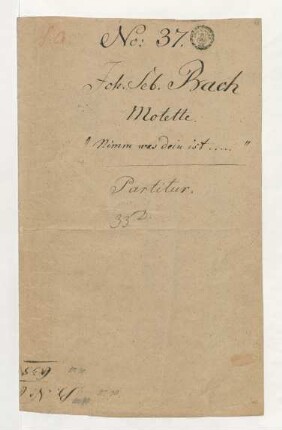 No: 37.
Joh. Seb. Bach
Motette.
"Nimm was dein ist ....."
Partitur.